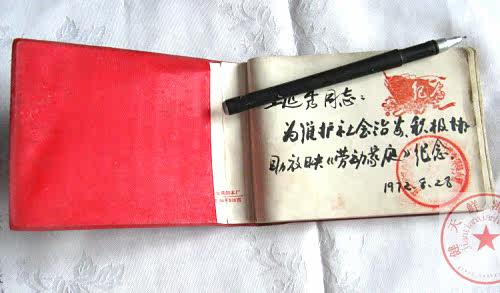 延秀同志:
为维护社会治安积极协
助放映《劳动家庭》纪念
1972.8.28